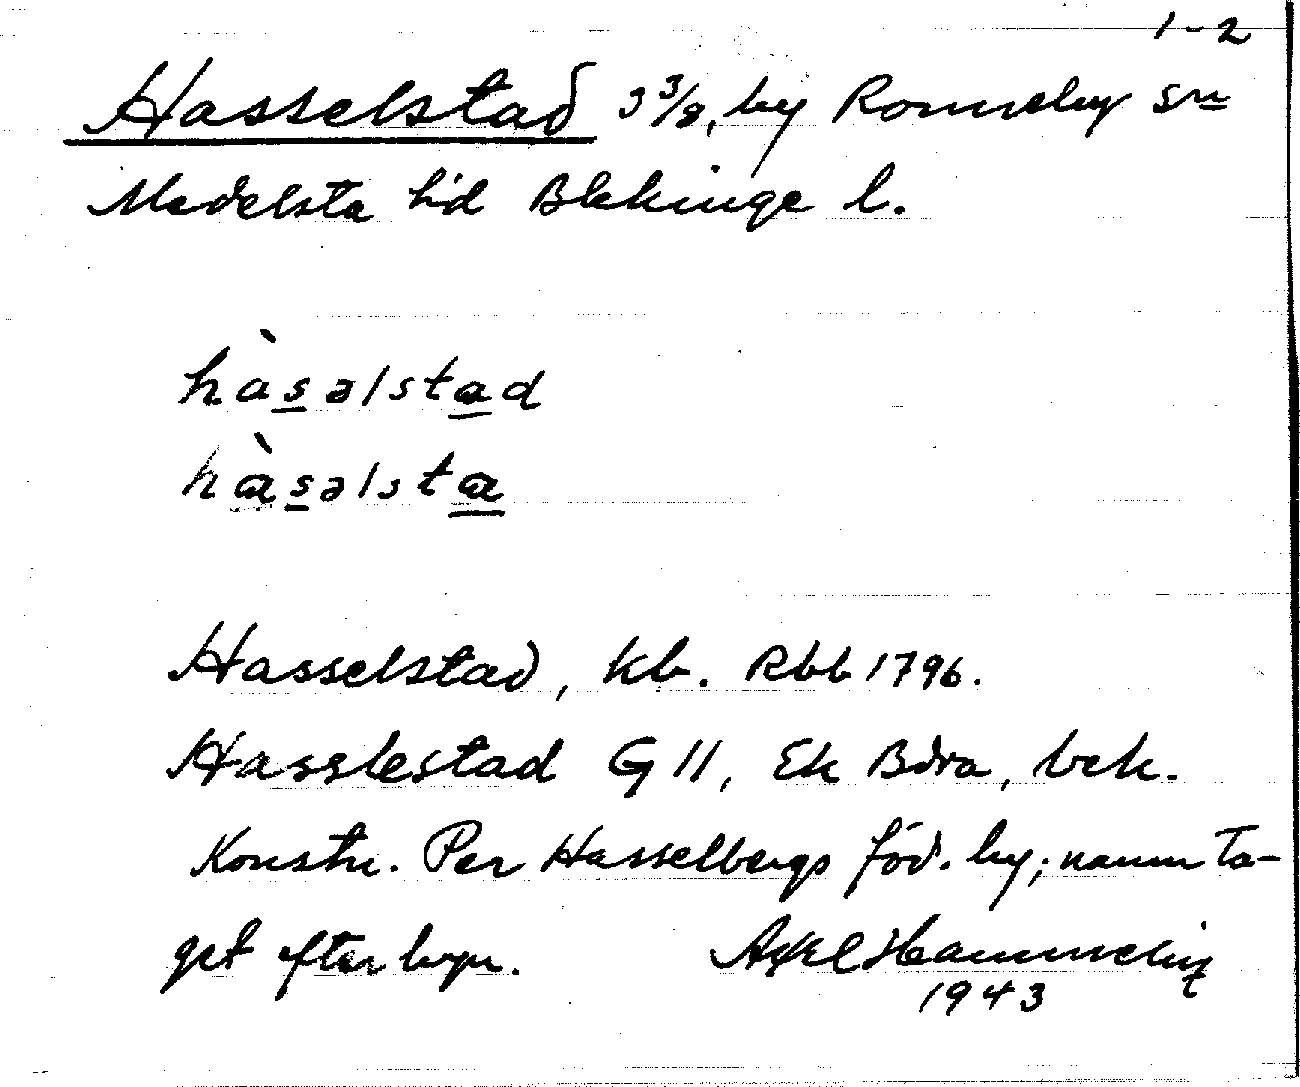 1-2
Hasselstad 3 3/8, by Ronneby sn
Medelsta hd Blekinge l.
hàsəlstad
hàsəlsta
Hasselstad, kb. Rbb 1796.
Hasslestad G II, Ek Bdra, bek.
Konstn. Per Hasselbergs föd. by; namn ta-
get efter byn.
Axel Hammneby
1943